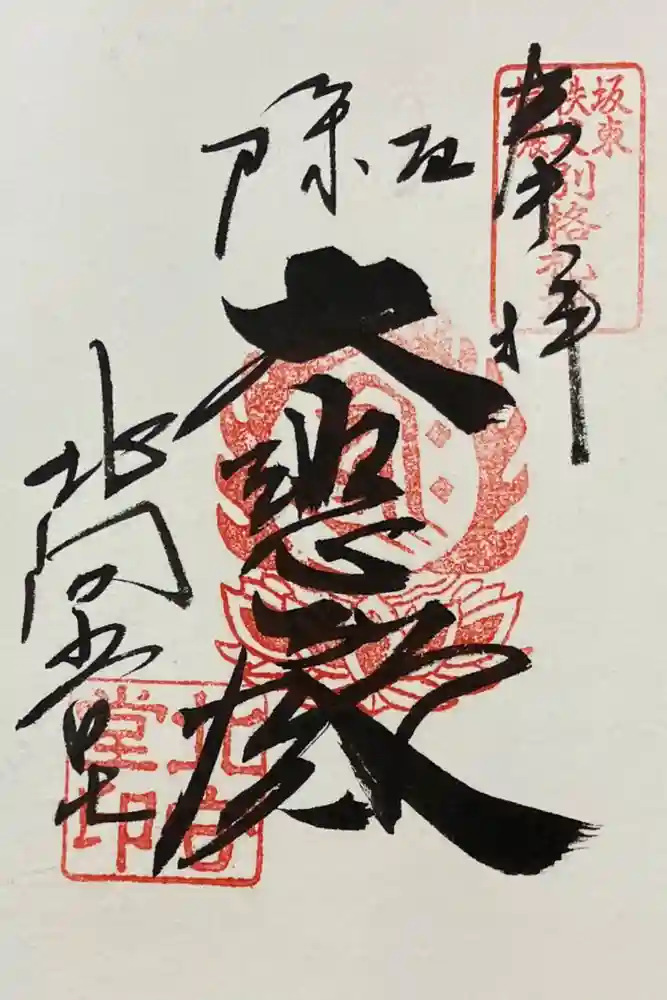 奉拝
坂東
秩父
別格札
厄除
大悲殿
北向堂
北向
堂印